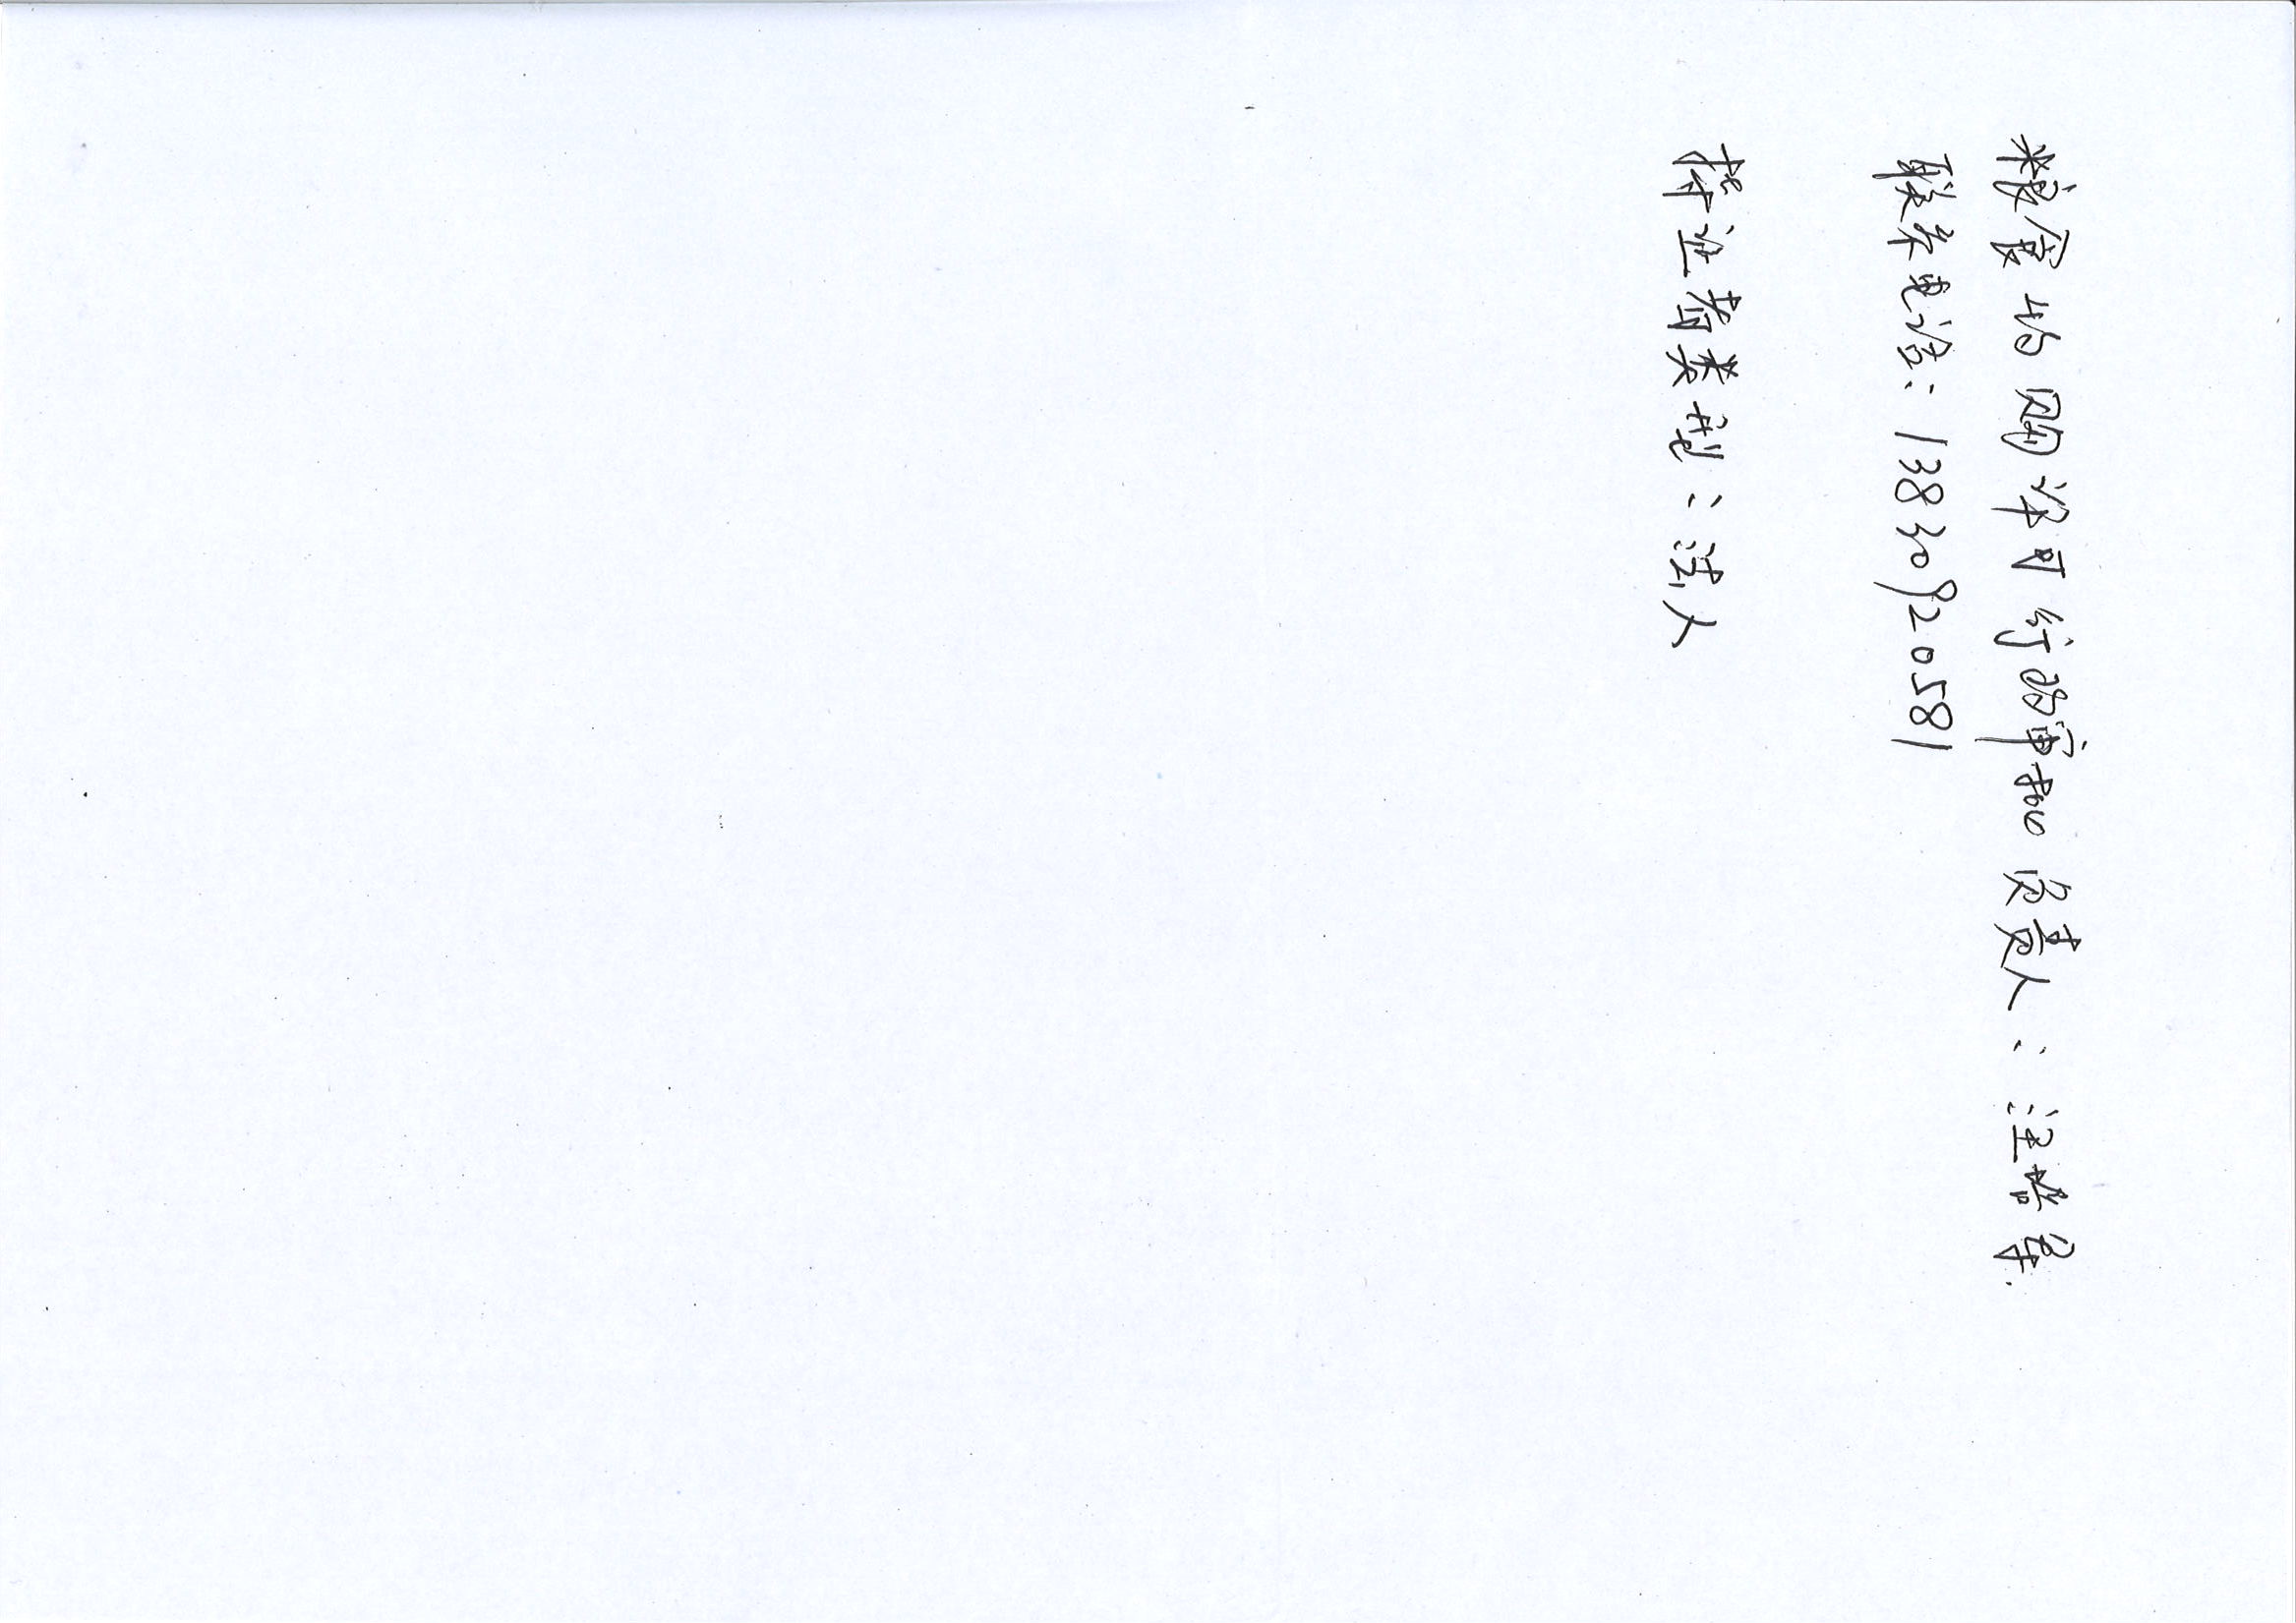 粮食收购许可行政审批负责人:汪培军.
联系电话:13830920581
持证者类型:法人